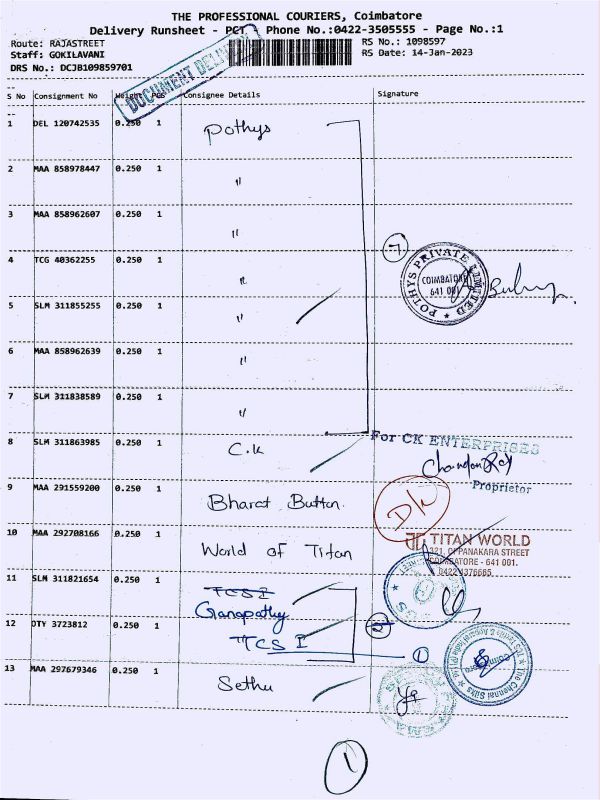 THE PROFESSIONAL COURIERS, Coimbatore
Delivery Runsheet - PCT Phone No.:0422-3505555 - Page No.:1
Route: RAJASTREET
RS No.: 1098597
Staff: GOKILAVANI
RS Date: 14-Jan-2023
DRS No.: DCJB109859701
DOCUMENT
S No Consignment No Weight PCS Consignee Details Signature
1 DEL 120742535 0.250 1 Pothys
2 MAA 858978447 0.250 1 "
3 MAA 858962607 0.250 1 "
4 TCG 40362255 0.250 1 "
7
POTHYS PRIVATE LIMITED
COIMBATORE
641 001
5 SLM 311855255 0.250 1 "
6 MAA 858962639 0.250 1 "
7 SLM 311838589 0.250 1 "
8 SLM 311863985 0.250 1 C.K
For CK ENTERPRISES
Proprietor
9 MAA 291559200 0.250 1 Bharat Button.
D/L
10 MAA 292708166 0.250 1 World of Titan
TITAN WORLD
321, OPPANAKARA STREET
COIMBATORE - 641 001.
0422 4376685
11 SLM 311821654 0.250 1 TCS I
Ganapathy
12 OTY 3723812 0.250 1 TCS I
2
1
The Chennai Silks
13 MAA 297679346 0.250 1 Sethu
1